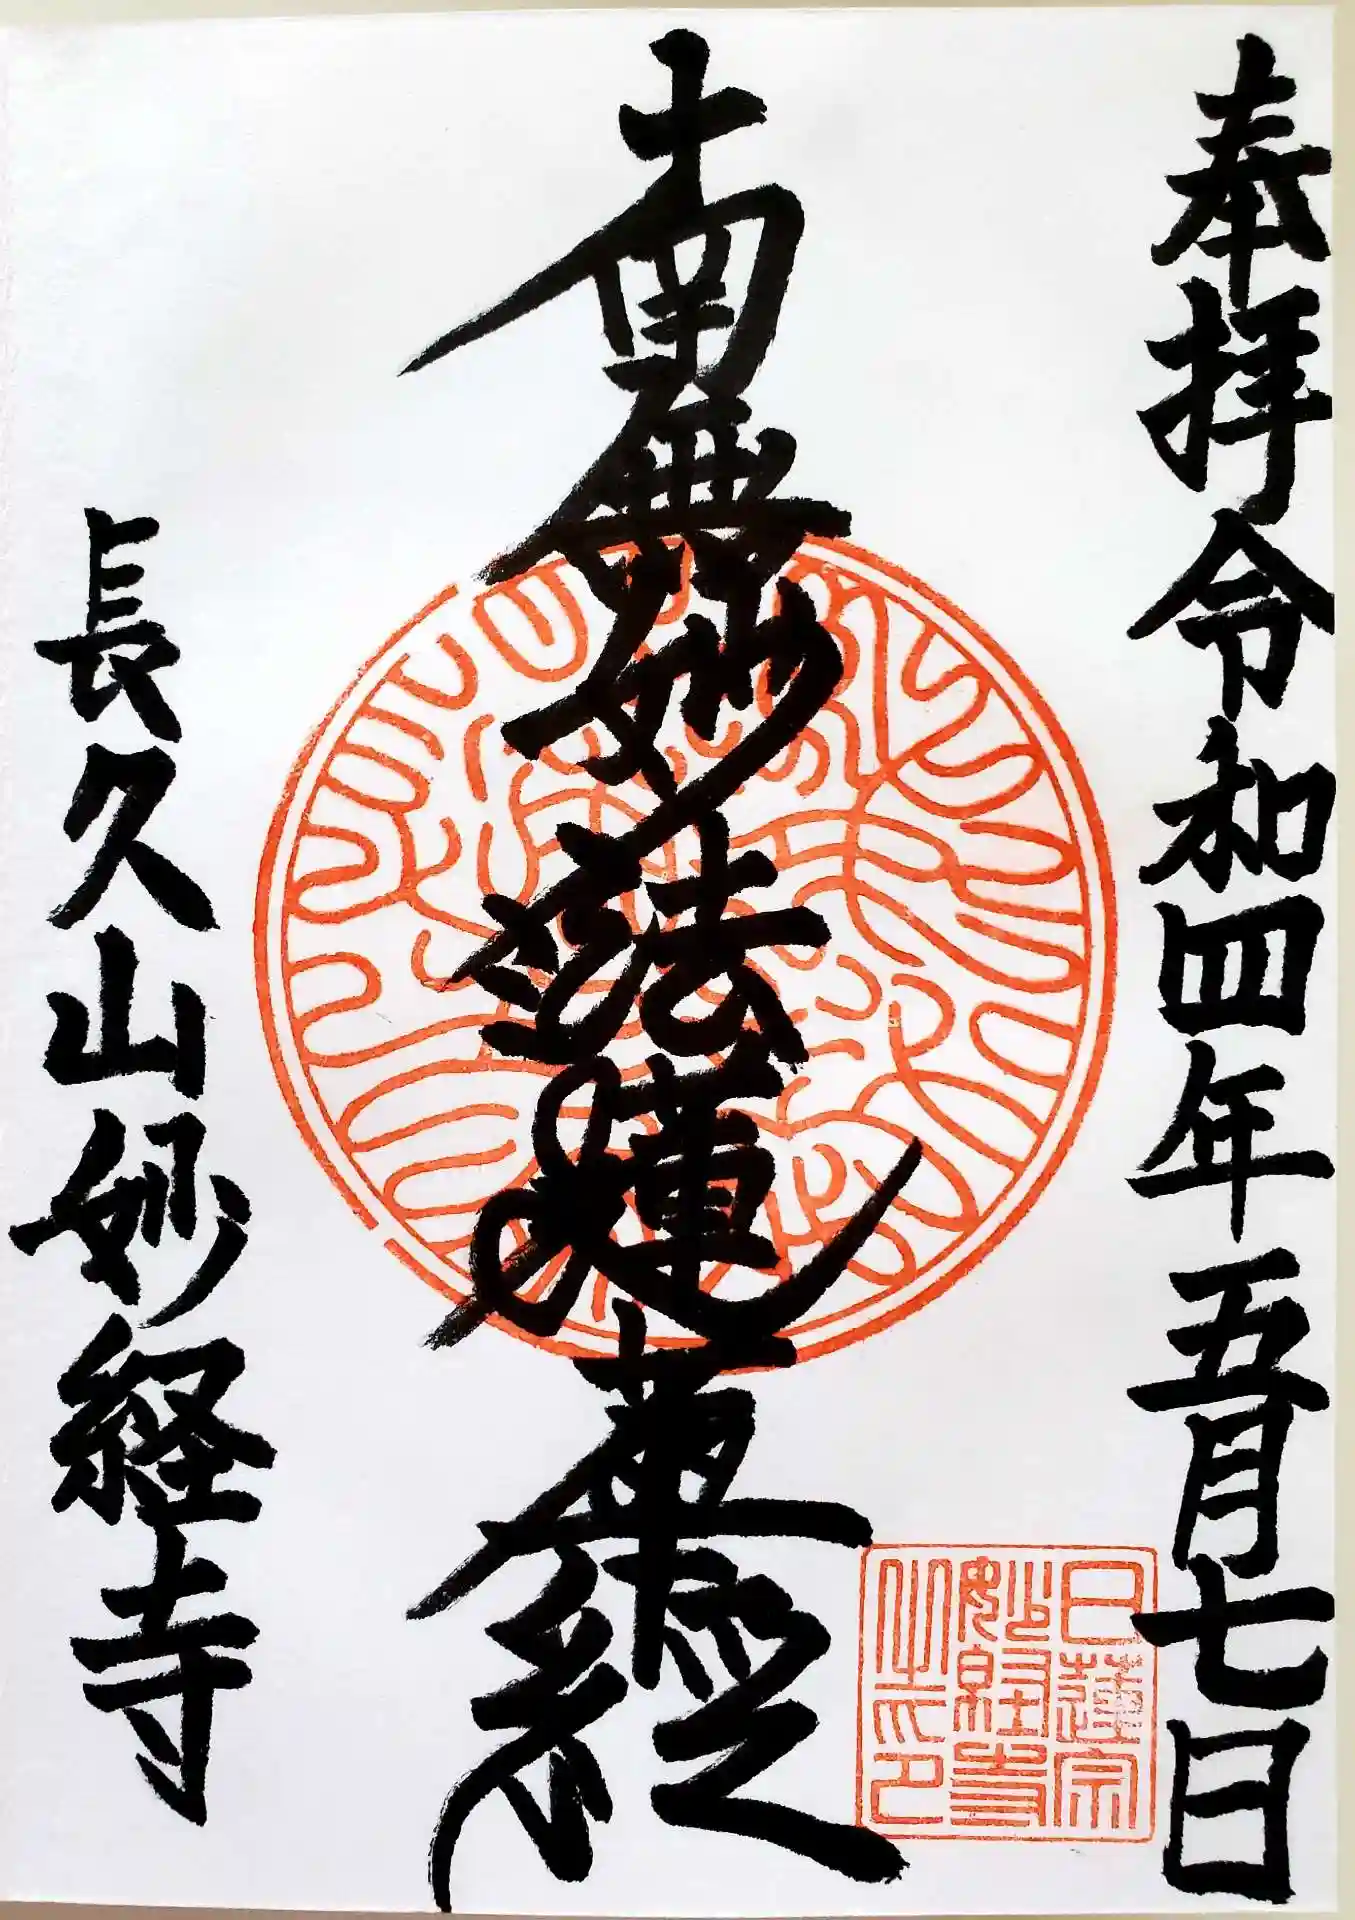 奉拝令和四年五月七日
南無妙法蓮華經
長久山妙経寺
日蓮宗
妙経寺
之印